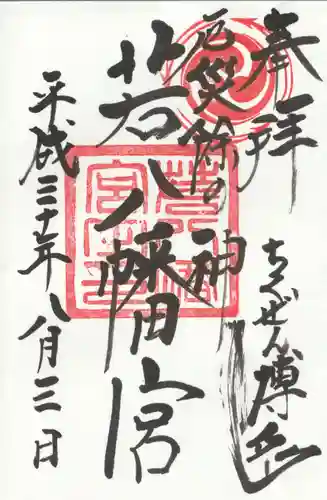 奉拝
ちくぜん博多
厄災除の神
若八幡宮
平成三十年八月三日